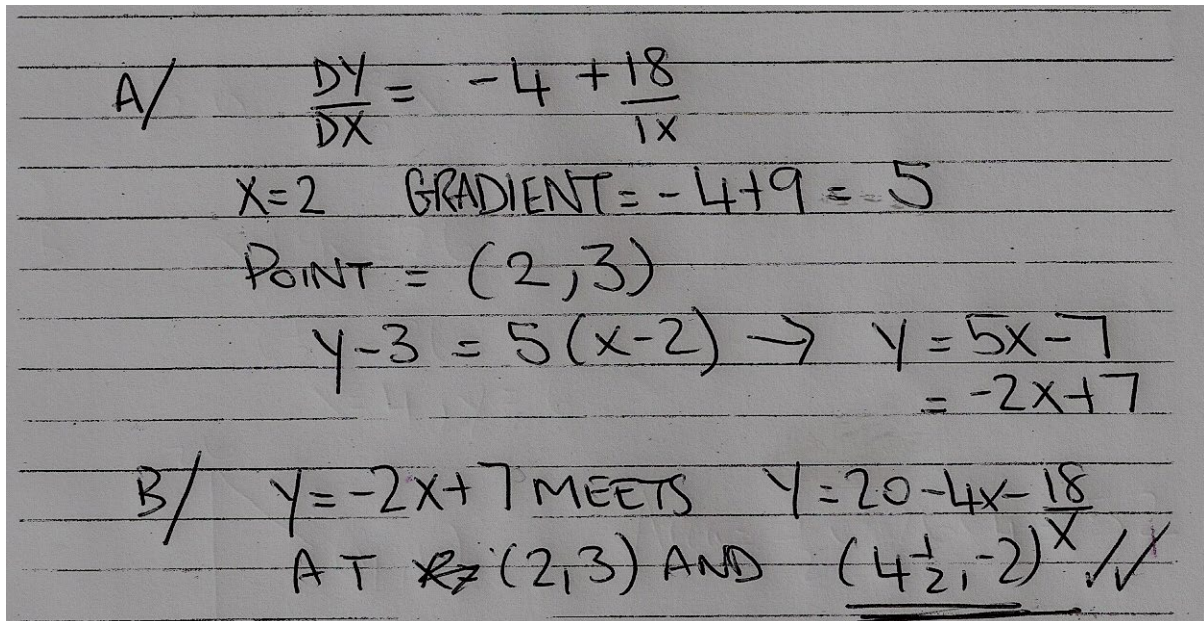 A/ DY/DX = -4 + 18/1X
X=2 GRADIENT = -4+9 = 5
POINT = (2,3)
Y-3 = 5(X-2) → Y = 5X-7
= -2X+7
B/ Y=-2X+7 MEETS Y=20-4X-18/X
AT (2,3) AND (4½,-2)